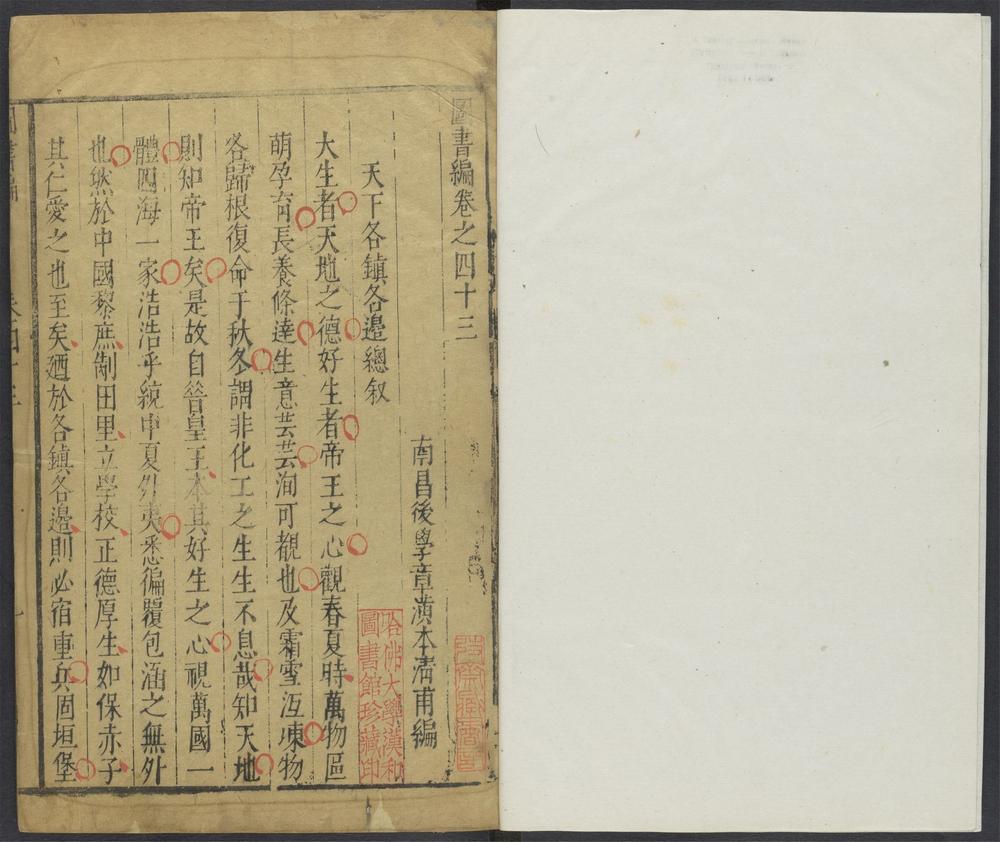 圖書編卷之四十三
南昌後學章潢本清甫編
天下各鎮各邊總叙
大生者天地之德好生者帝王之心觀春夏時萬物區
萌孕育長養條達生意芸芸洵可觀也及霜雪沍凍物
各歸根復命于秋冬謂非化工之生生不息哉知天地
則知帝王矣是故自昔皇王本其好生之心視萬國一
體四海一家浩浩乎統中夏外夷悉徧覆包涵之無外
也然於中國黎庶制田里立學校正德厚生如保赤子
其仁愛之也至矣廼於各鎮各邊則必宿重兵固垣堡
哈佛大學漢和
圖書館珍藏印